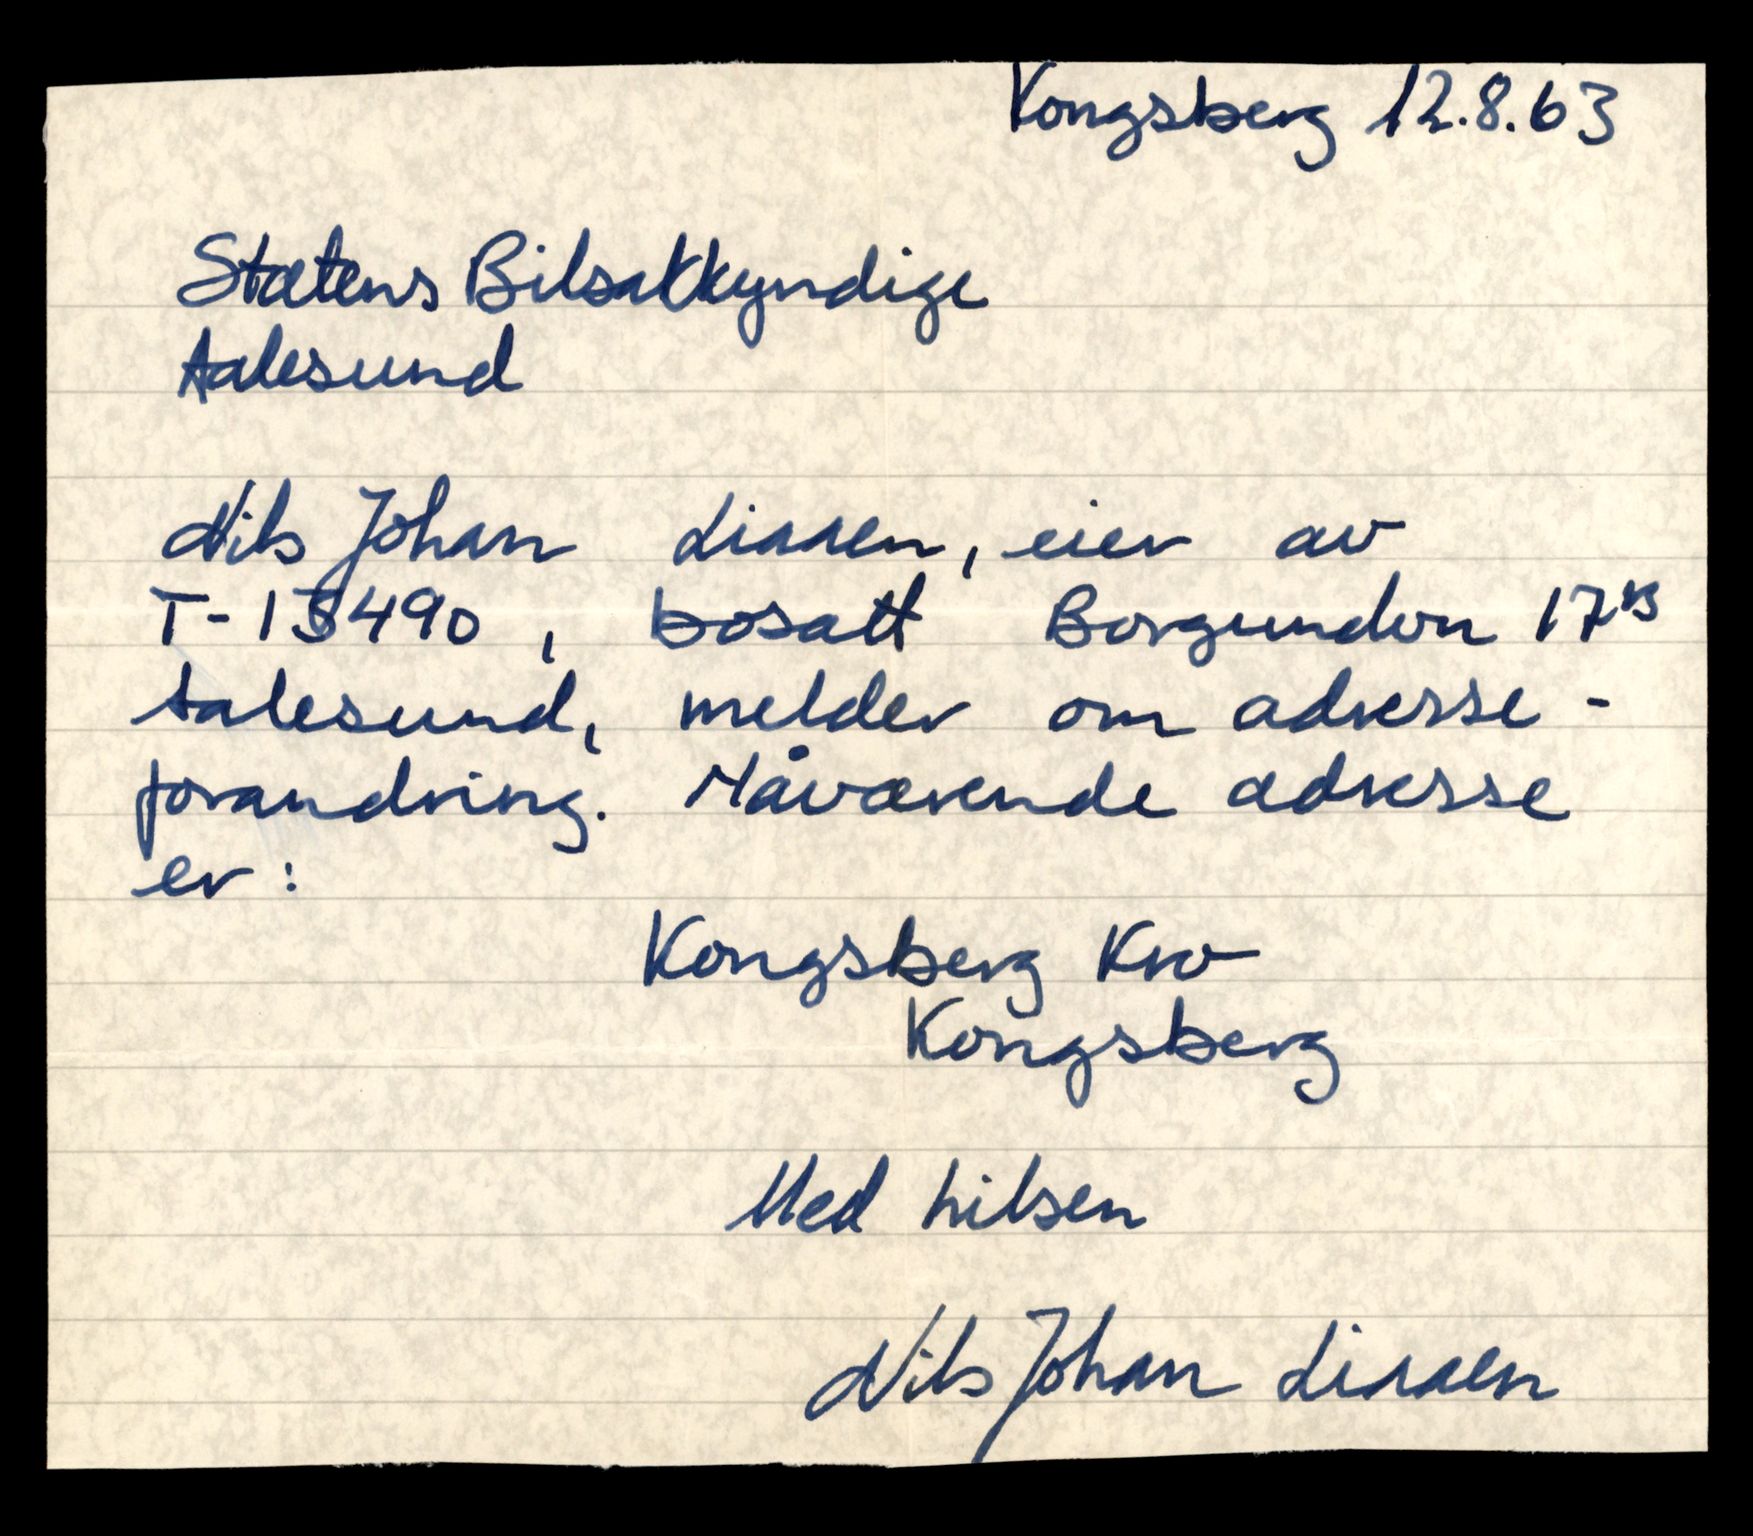 Kongsberg 12.8.63
Statens Bilsakkyndige
Aalesund
Nils Johan Liaaen, eier av
T-13490, bosatt Borgundvn 17B
Aalesund, melder om adresse-
forandring. Nåværende adresse
er:
Kongsberg Kro
Kongsberg
Med hilsen
Nils Johan Liaaen